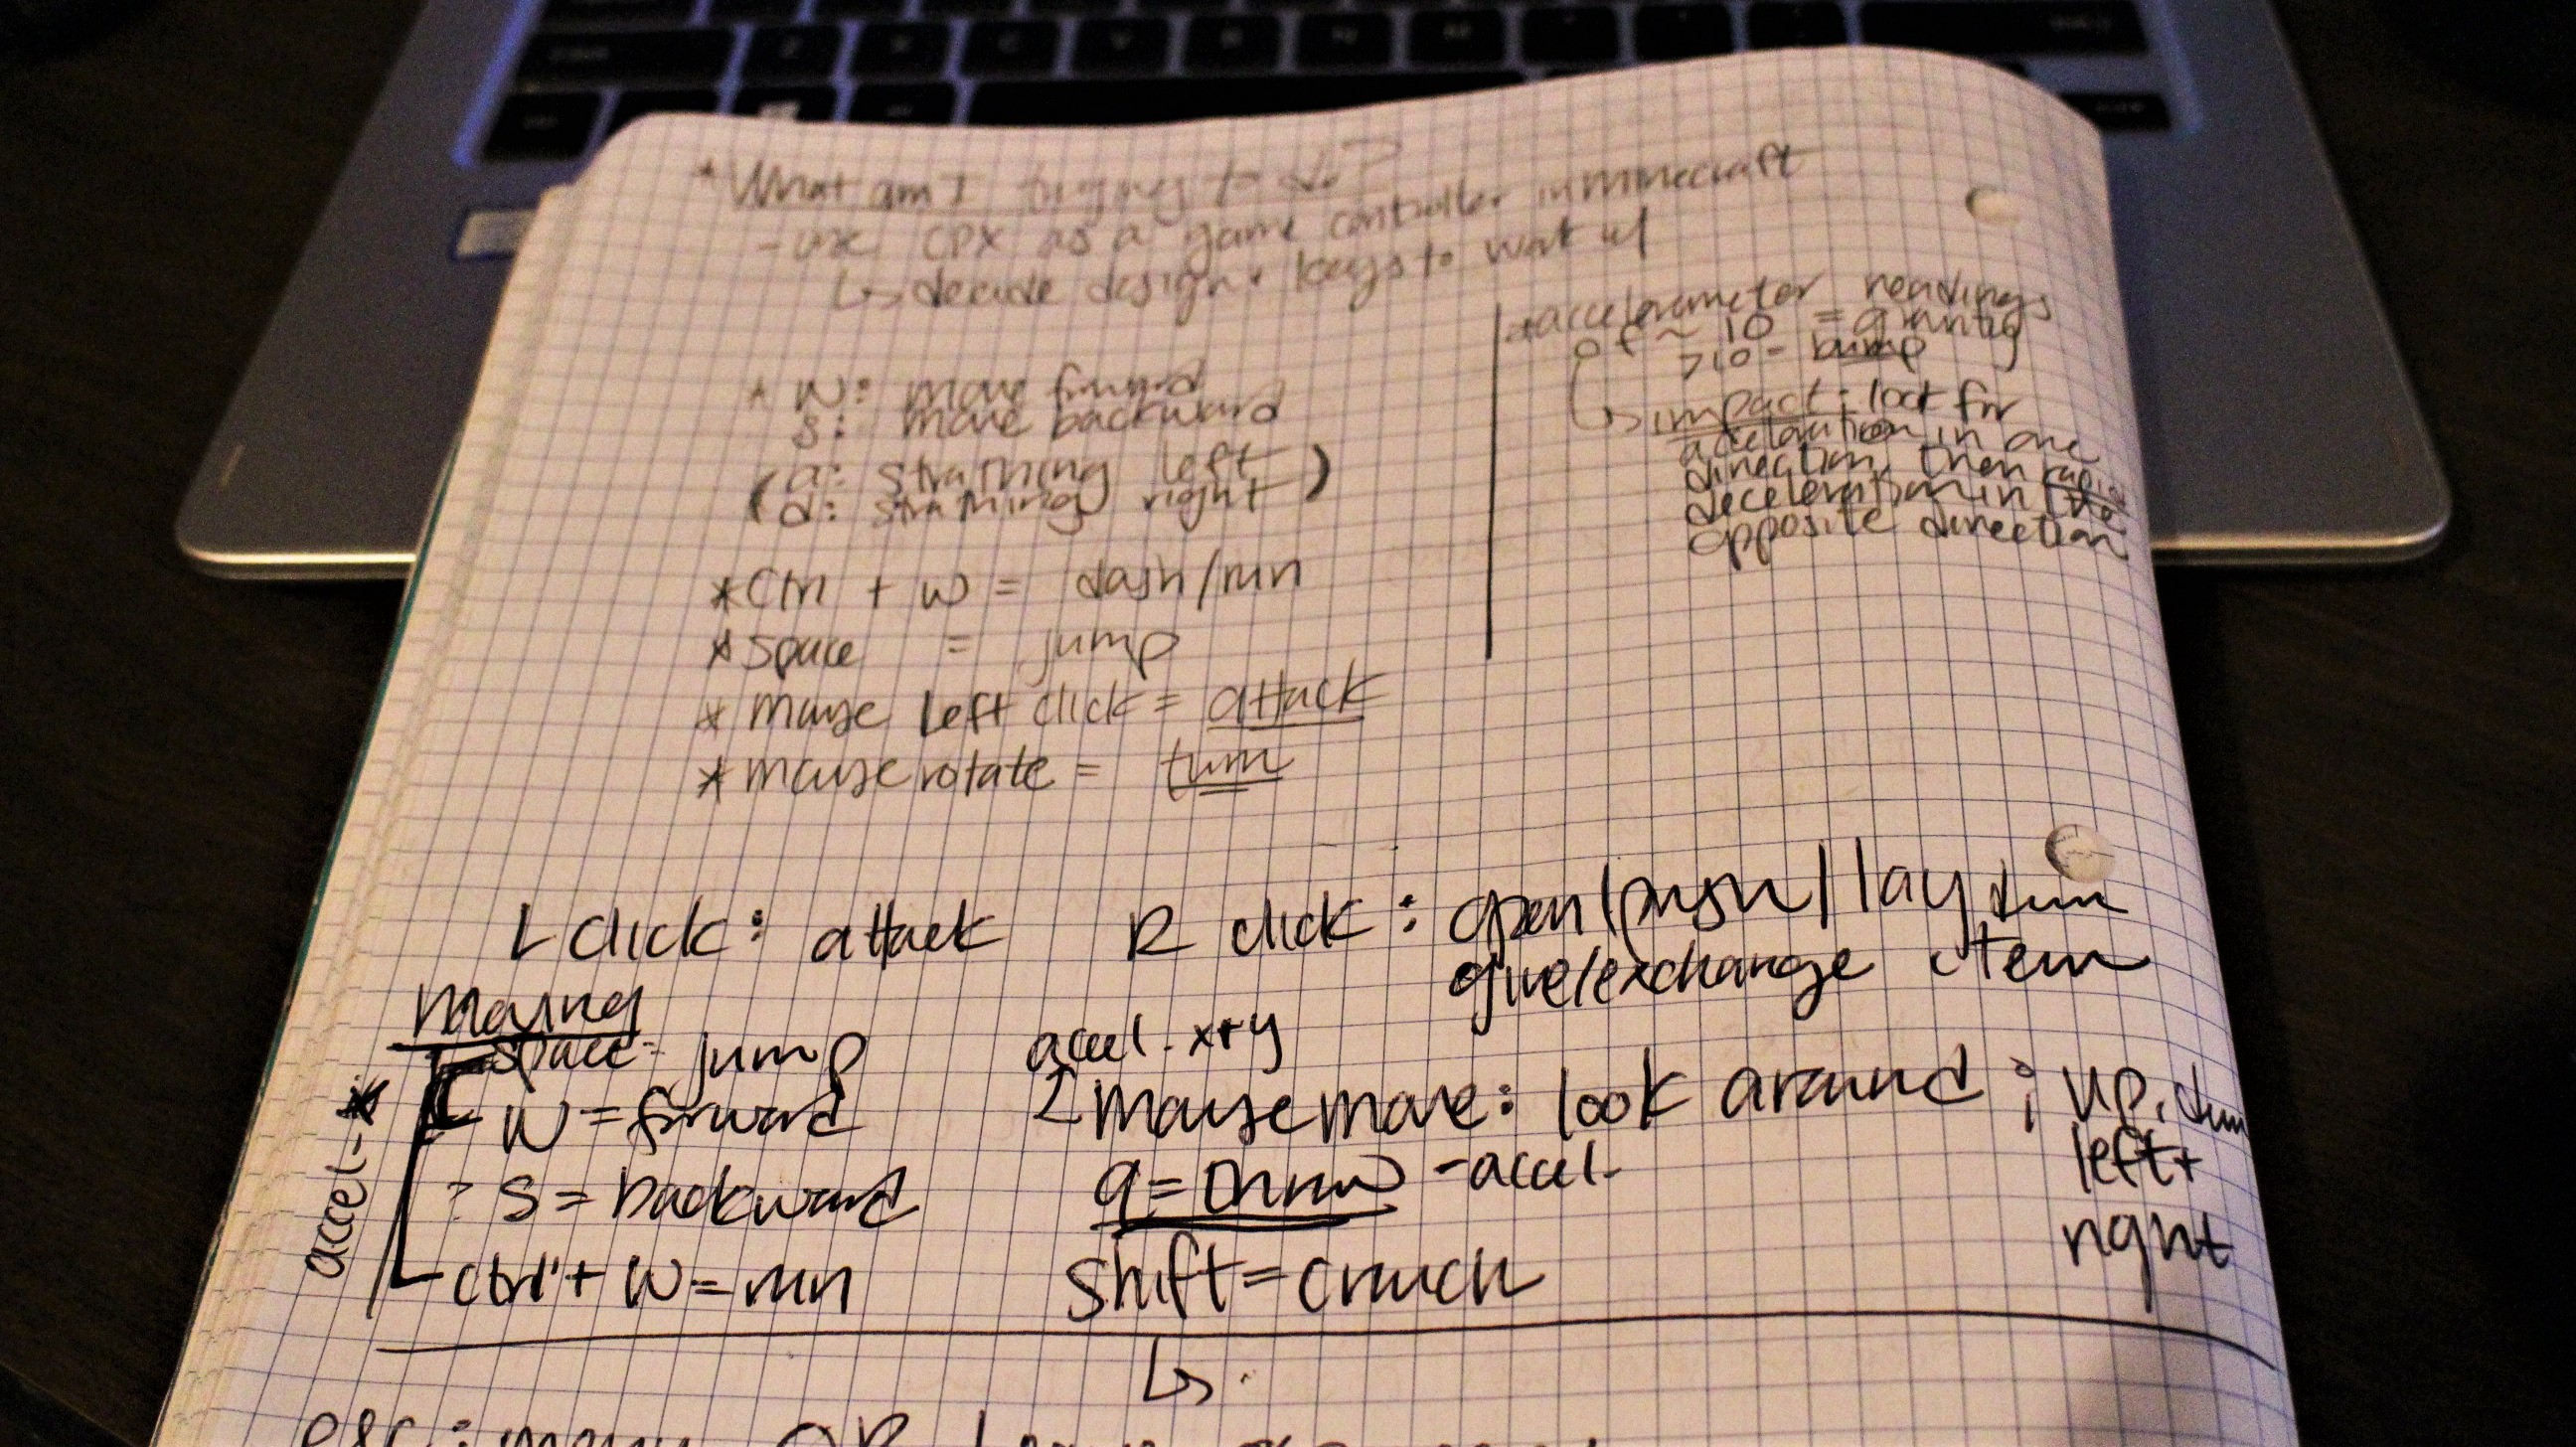 * What am I trying to do?
- use CPX as a game controller in minecraft
↳ decide design + keys to work w/
* W: move forward
s: move backward
(a: strathing left)
(d: strathing right)
* accelerometer readings
of ~ 10 = gravity
>10 - bump
↳ impact: look for
acceleration in one
direction, then rapid
deceleration in the
opposite direction
* Ctrl + w = dash/run
* space = jump
* mouse left click = attack
* mouse rotate = turn
L click: attack
R click: open/push/lay down
give/exchange item
Moving
space = jump
W = forward
s = backward
ctrl + W = run
accel-*
accel. x+y
mouse move: look around ; up, down
left +
right
q = throw - accel-
shift = crouch
↳
esc: menu OR